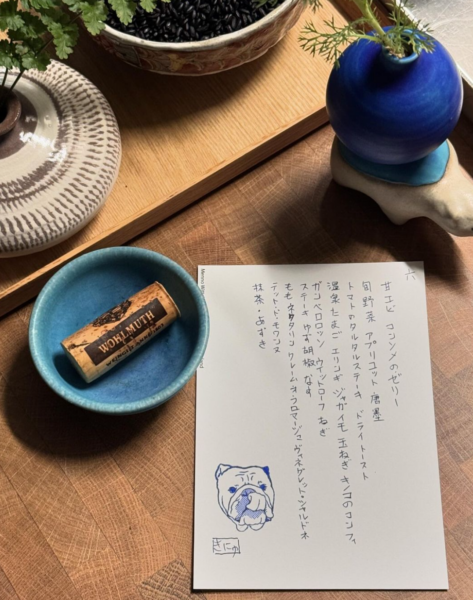 六
甘エビ コンソメのゼリー
旬野菜 アプリコット 唐墨
トマトのタルタルステーキ ドライトースト
温泉たまご エリンギ ジャガイモ 玉ねぎ キノコのコンフィ
ガンベロロッソ ウイットローフ ねぎ
ステーキ ゆず胡椒 なす
もも ネクタリン クレームオフロマージュ ヴィネグレット・シャルドネ
テット・ド・モワンヌ
抹茶・あずき
きにゅ
WOHLMUTH